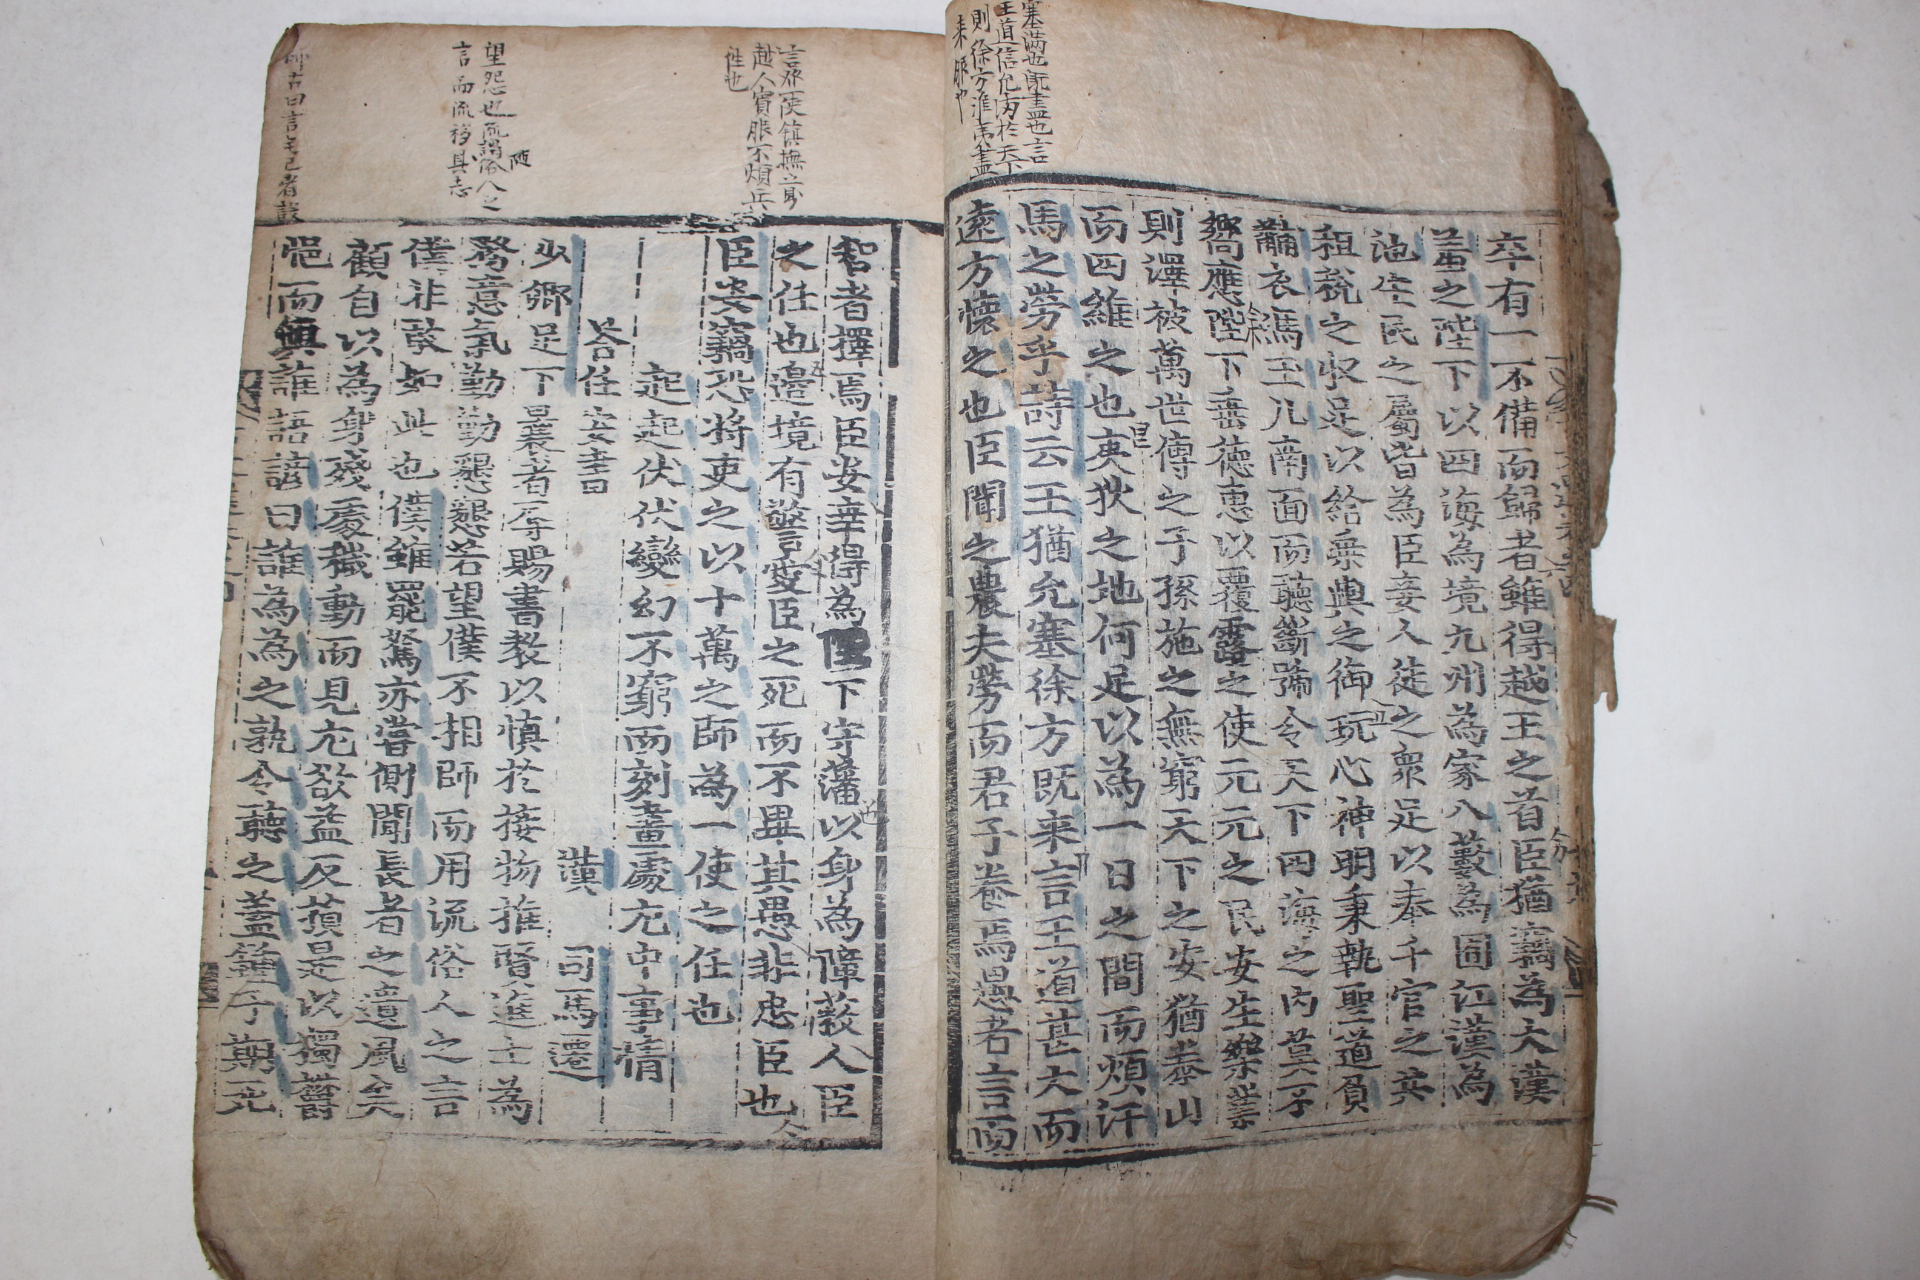 塞滿也旣盡也言
王道信充滿於天下
則徐方淮夷盡
来服也
卒有一不備而歸者雖得越王之首臣猶竊為大漢
羞之陛下以四海為境九州為家八藪為囿江漢為
池生民之屬皆為臣妾人徒之衆足以奉千官之共
租稅之收足以給乗輿之御玩心神明秉執聖道負
黼衣馮玉几南面而聽斷號令天下四海之内莫不
嚮應陛下垂德惠以覆露之使元元之民安生樂業
則澤被萬世傳之子孫施之無窮天下之安猶泰山
而四維之也夷狄之地何足以為一日之間而煩汗
馬之勞乎詩云王猶允塞徐方既来言王道甚大而
遠方懷之也臣聞之農夫勞而君子養焉愚者言而
言派一使鎮撫之則
越人賓服不煩兵
智者擇焉臣安幸得為臣下守藩以身為障蔽人臣
之任也邊境有警愛臣之死而不畢其愚非忠臣也
臣安竊恐將吏之以十萬之師為一使之任也
起起伏伏變幻不窮而刻畫處尤中事情
答任安書
漢 司馬遷
少卿足下曩者辱賜書教以慎於接物推賢進士為
務意氣勤勤懇懇若望僕不相師而用流俗人之言
僕非敢如此也僕雖罷駑亦嘗側聞長者之遺風矣
顧自以為身殘處穢動而見尤欲益反損是以獨鬱
悒而與誰語諺曰誰為為之孰令聽之蓋鍾子期死
望怨也流謂隨俗人之
言而流移其志